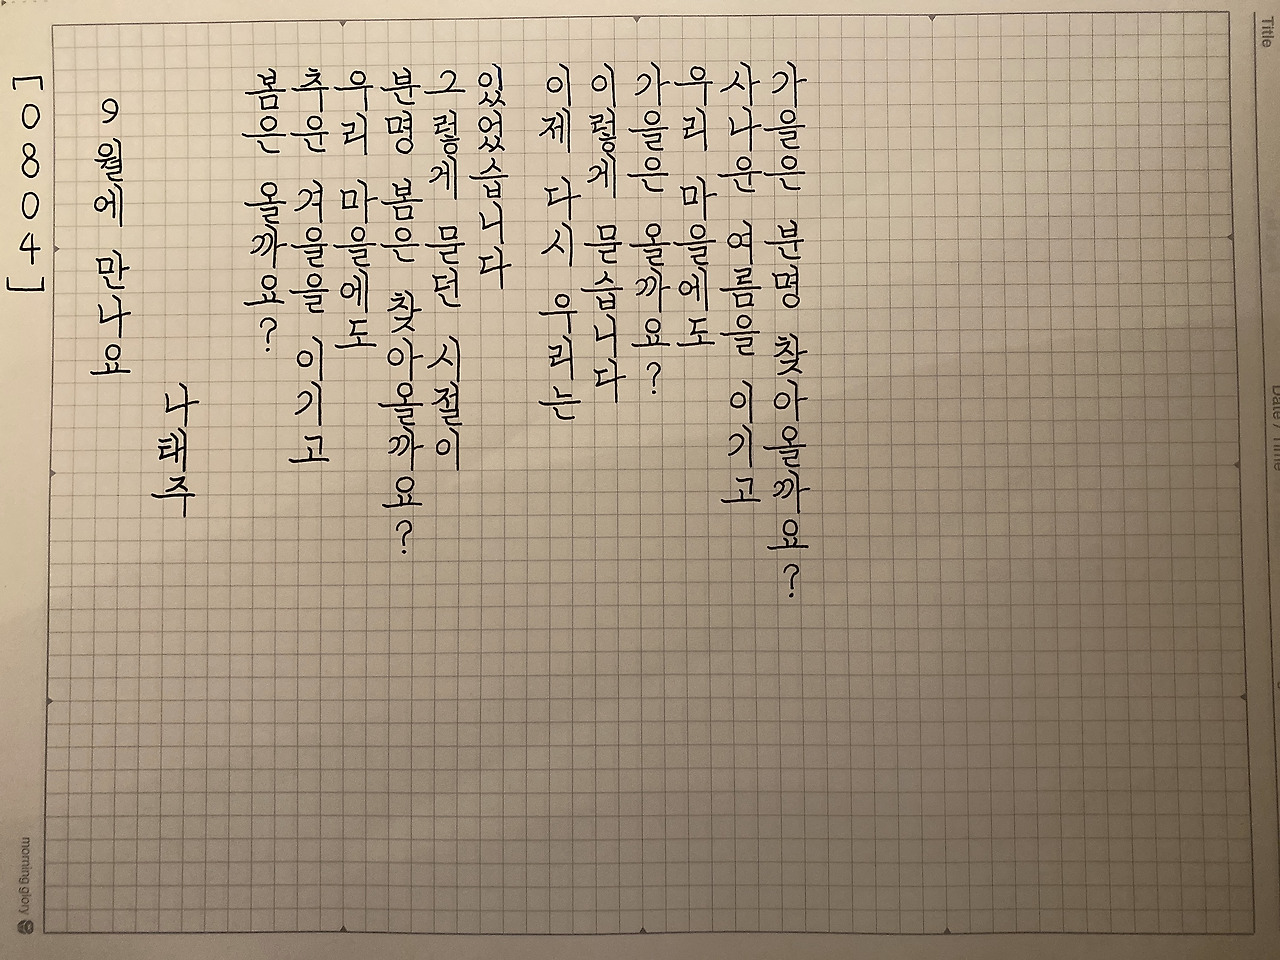 [0804]
9월에 만나요
나태주
봄은 올까요?
추운 겨울을 이기고
우리 마을에도
분명 봄은 찾아올까요?
그렇게 묻던 시절이
있었습니다
이제 다시 우리는
이렇게 묻습니다
가을은 올까요?
우리 마을에도
사나운 여름을 이기고
가을은 분명 찾아올까요?
Title
Date / Time
morning glory